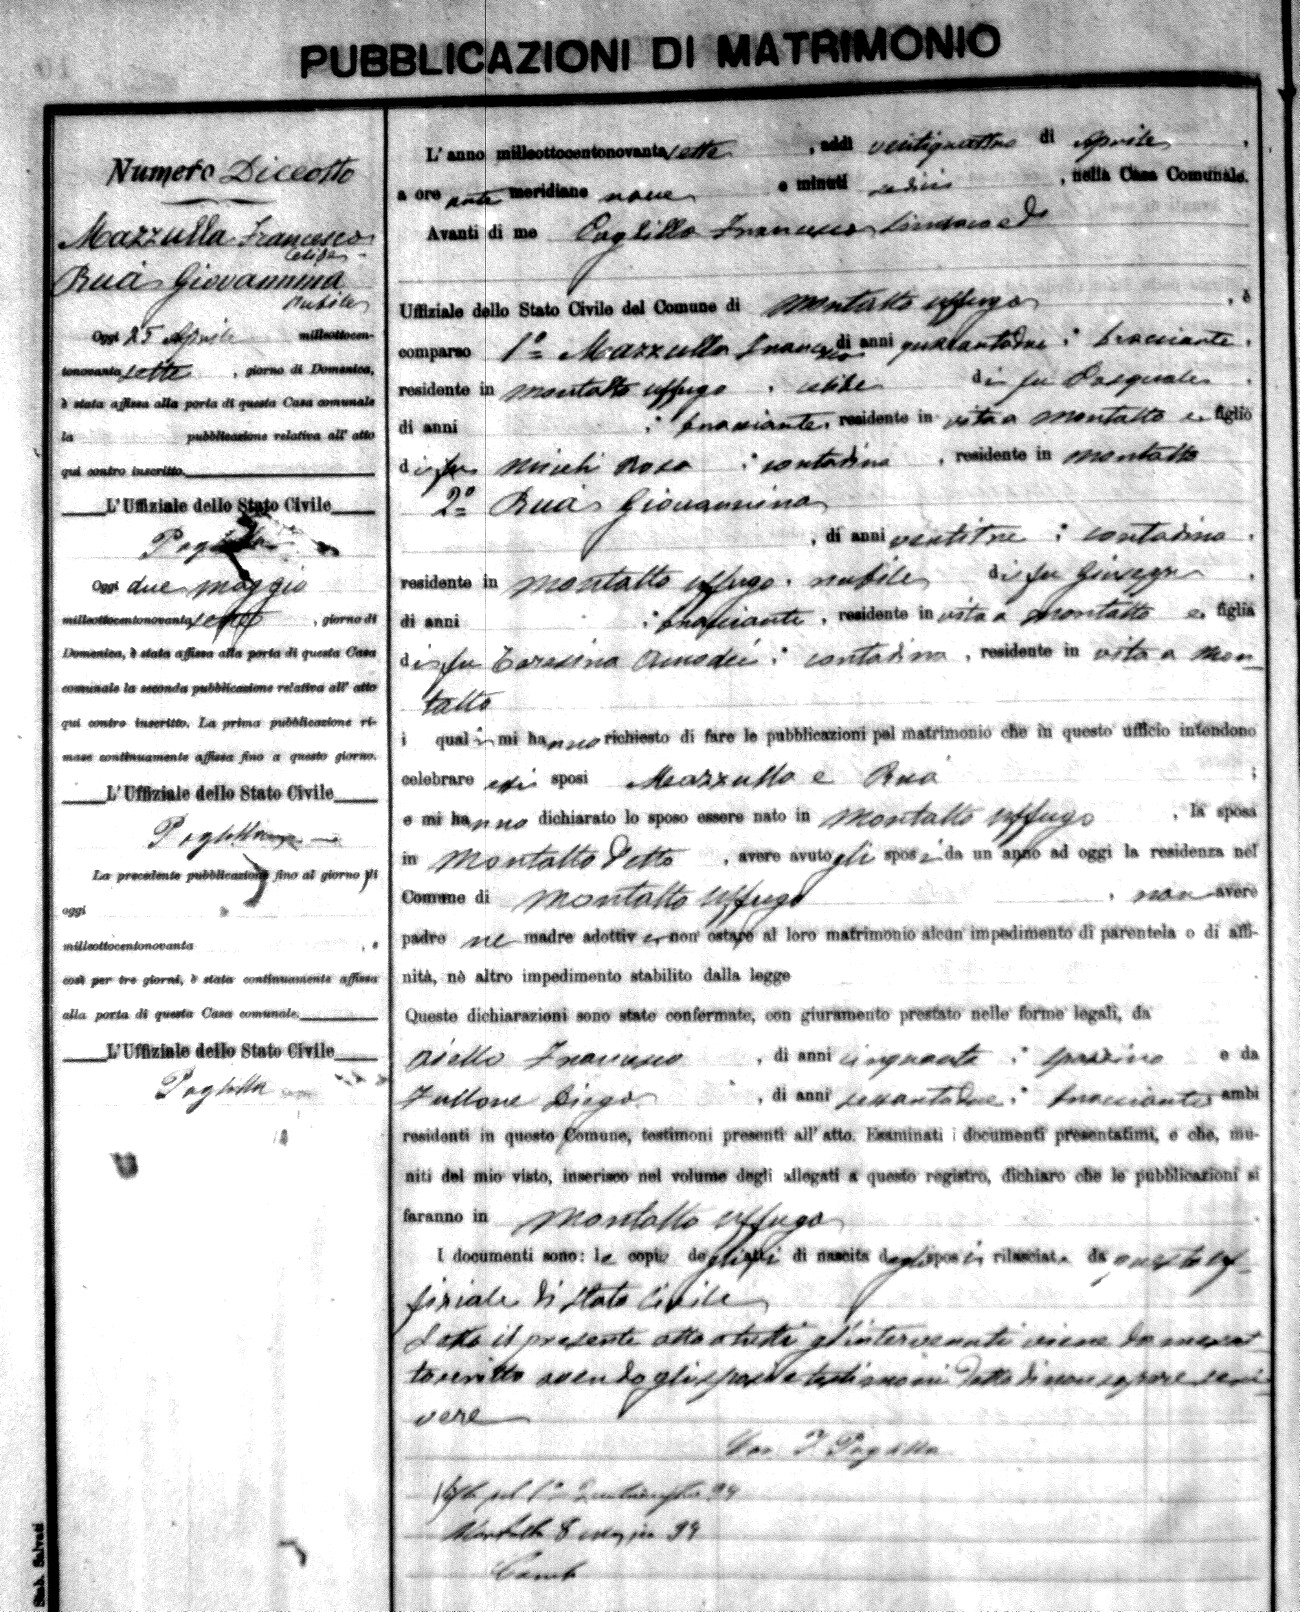 PUBBLICAZIONI DI MATRIMONIO
Numero Diceotto
Mazzulla Francesco
celibe
Ruà Giovannina
nubile
Oggi 25 Aprile milleottocen-
tonovanta sette, giorno di Domenica,
è stata affissa alla porta di questa Casa comunale
la pubblicazione relativa all' atto
qui contro inscritto.
L'Uffiziale dello Stato Civile
Oggi due maggio
milleottocentonovanta sette, giorno di
Domenica, è stata affissa alla porta di questa Casa
comunale la seconda pubblicazione relativa all' atto
qui contro inscritto. La prima pubblicazione ri-
mase continuamente affissa fino a questo giorno.
L'Uffiziale dello Stato Civile
La precedente pubblicazione fino al giorno di
oggi
milleottocentonovanta , e
così per tre giorni, è stata continuamente affissa
alla porta di questa Casa comunale.
L'Uffiziale dello Stato Civile
Paglilla
L' anno milleottocentonovanta sette, addì ventiquattro di Aprile,
a ore ante meridiane nove e minuti sedici, nella Casa Comunale.
Avanti di me Paglilla Francesco Sindaco ed
Uffiziale dello Stato Civile del Comune di Montalto Uffugo, è
comparso 1º Mazzulla Francesco di anni quarantadue; bracciante,
residente in Montalto Uffugo, celibe di fu Pasquale,
di anni ; bracciante, residente in vita a Montalto e figlio
di fu Miceli Rosa; contadina, residente in Montalto
2º Ruà Giovannina
, di anni ventitre; contadina,
residente in Montalto Uffugo, nubile di fu Giuseppe,
di anni ; bracciante, residente in vita a Montalto e figlia
di fu Teresina Amodei; contadina, residente in vita a Mon-
talto
i quali mi hanno richiesto di fare le pubblicazioni pel matrimonio che in questo ufficio intendono
celebrare essi sposi Mazzulla e Ruà;
e mi hanno dichiarato lo sposo essere nato in Montalto Uffugo, la sposa
in Montalto detto, avere avuto gli sposi da un anno ad oggi la residenza nel
Comune di Montalto Uffugo, non avere
padre ne madre adottivi e non ostare al loro matrimonio alcun impedimento di parentela o di affi-
nità, nè altro impedimento stabilito dalla legge
Queste dichiarazioni sono state confermate, con giuramento prestato nelle forme legali, da
Aiello Francesco, di anni cinquanta; spazzino e da
Fullone Diego, di anni sessantadue; bracciante ambi
residenti in questo Comune, testimoni presenti all' atto. Esaminati i documenti presentatimi, e che, mu-
niti del mio visto, inserisco nel volume degli allegati a questo registro, dichiaro che le pubblicazioni si
faranno in Montalto Uffugo
I documenti sono: le copie degli atti di nascita degli sposi rilasciate da questo Uf-
fiziale di Stato Civile
Letto il presente atto a tutti gl'intervenuti viene da me sot-
toscritto avendo gli sposi e testimoni detto di non sapere scri-
vere
F. Paglilla
Montalto 8
Stab. Salvati